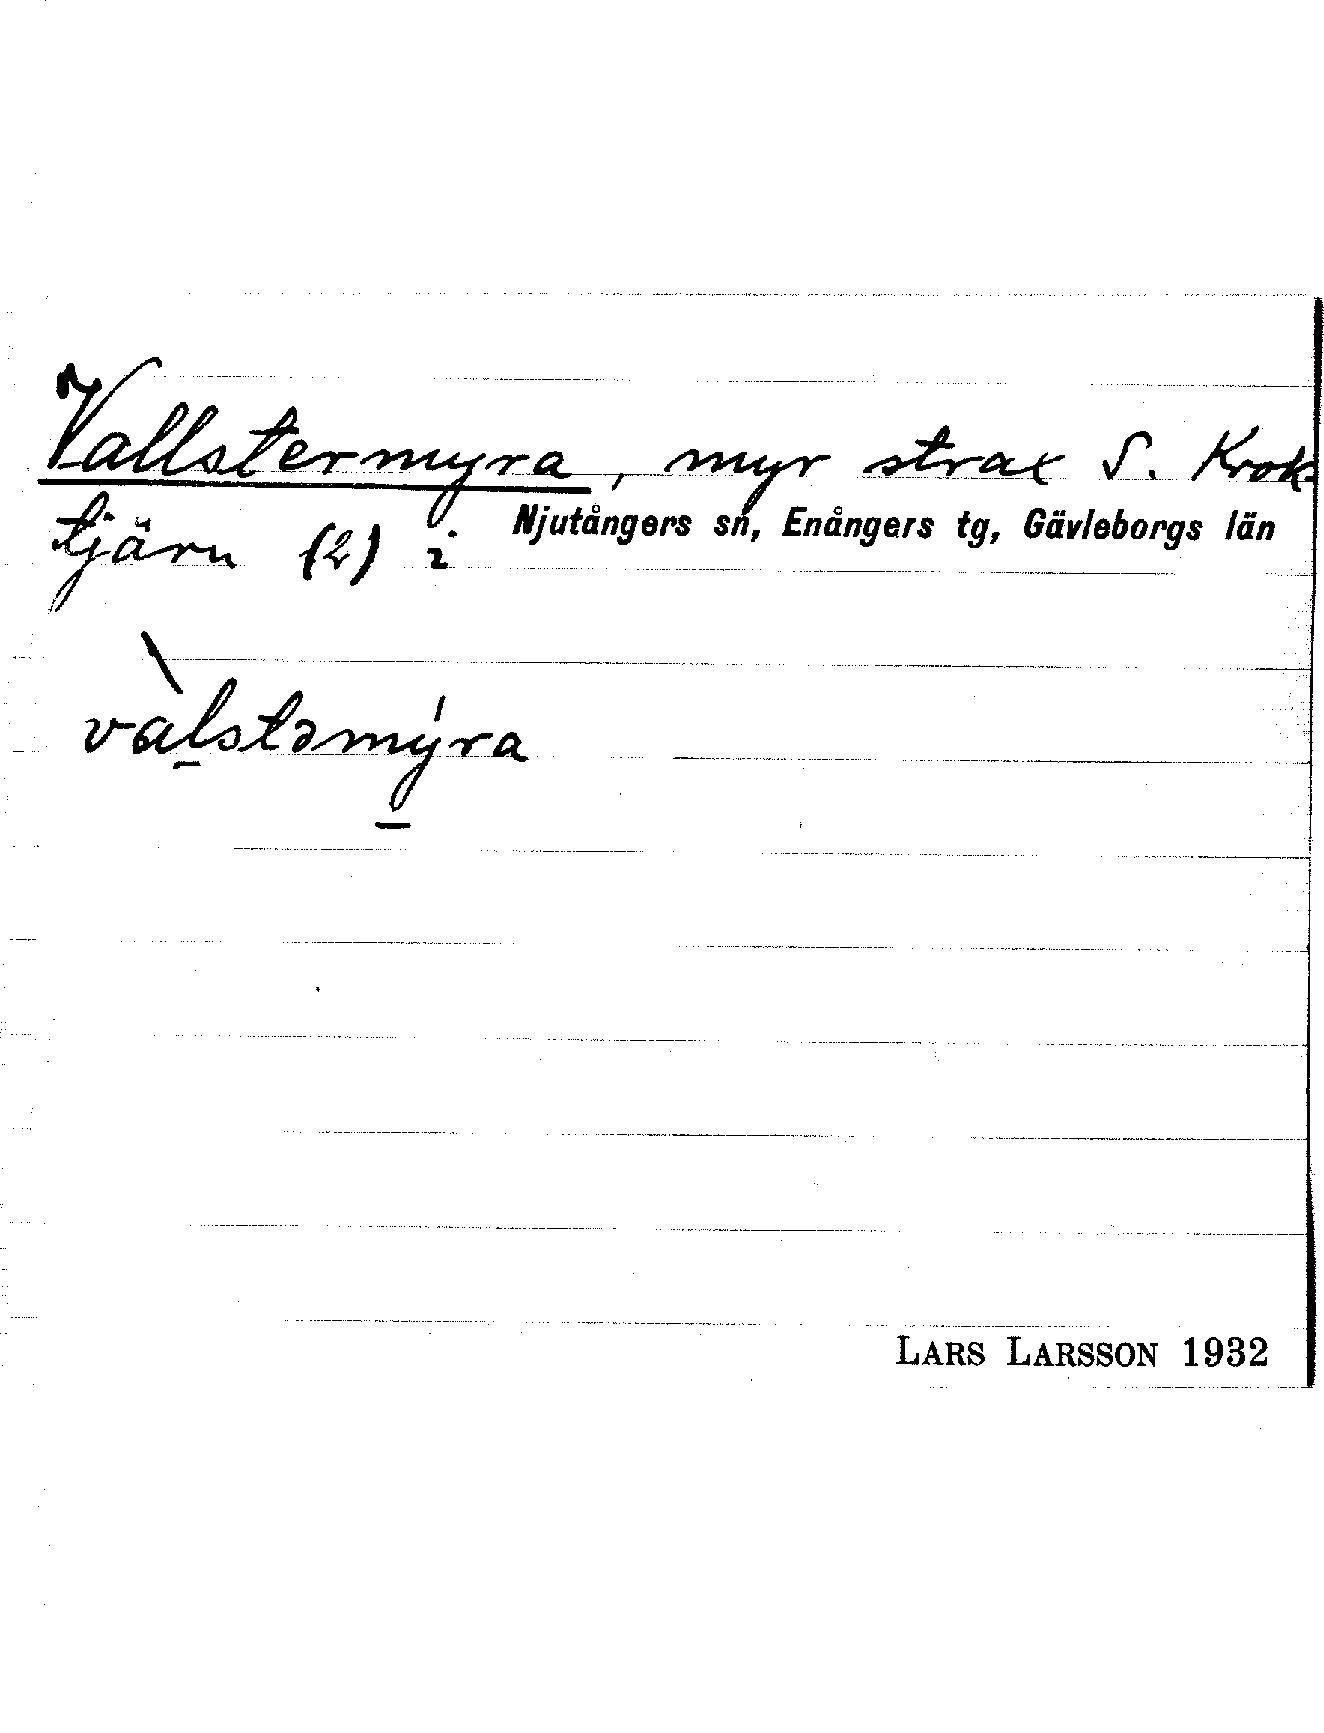 Vallstermyra, myr strax S. Krok-
tjärn (2) i Njutångers sn, Enångers tg, Gävleborgs län
val̠stəmý̠ra
LARS LARSSON 1932